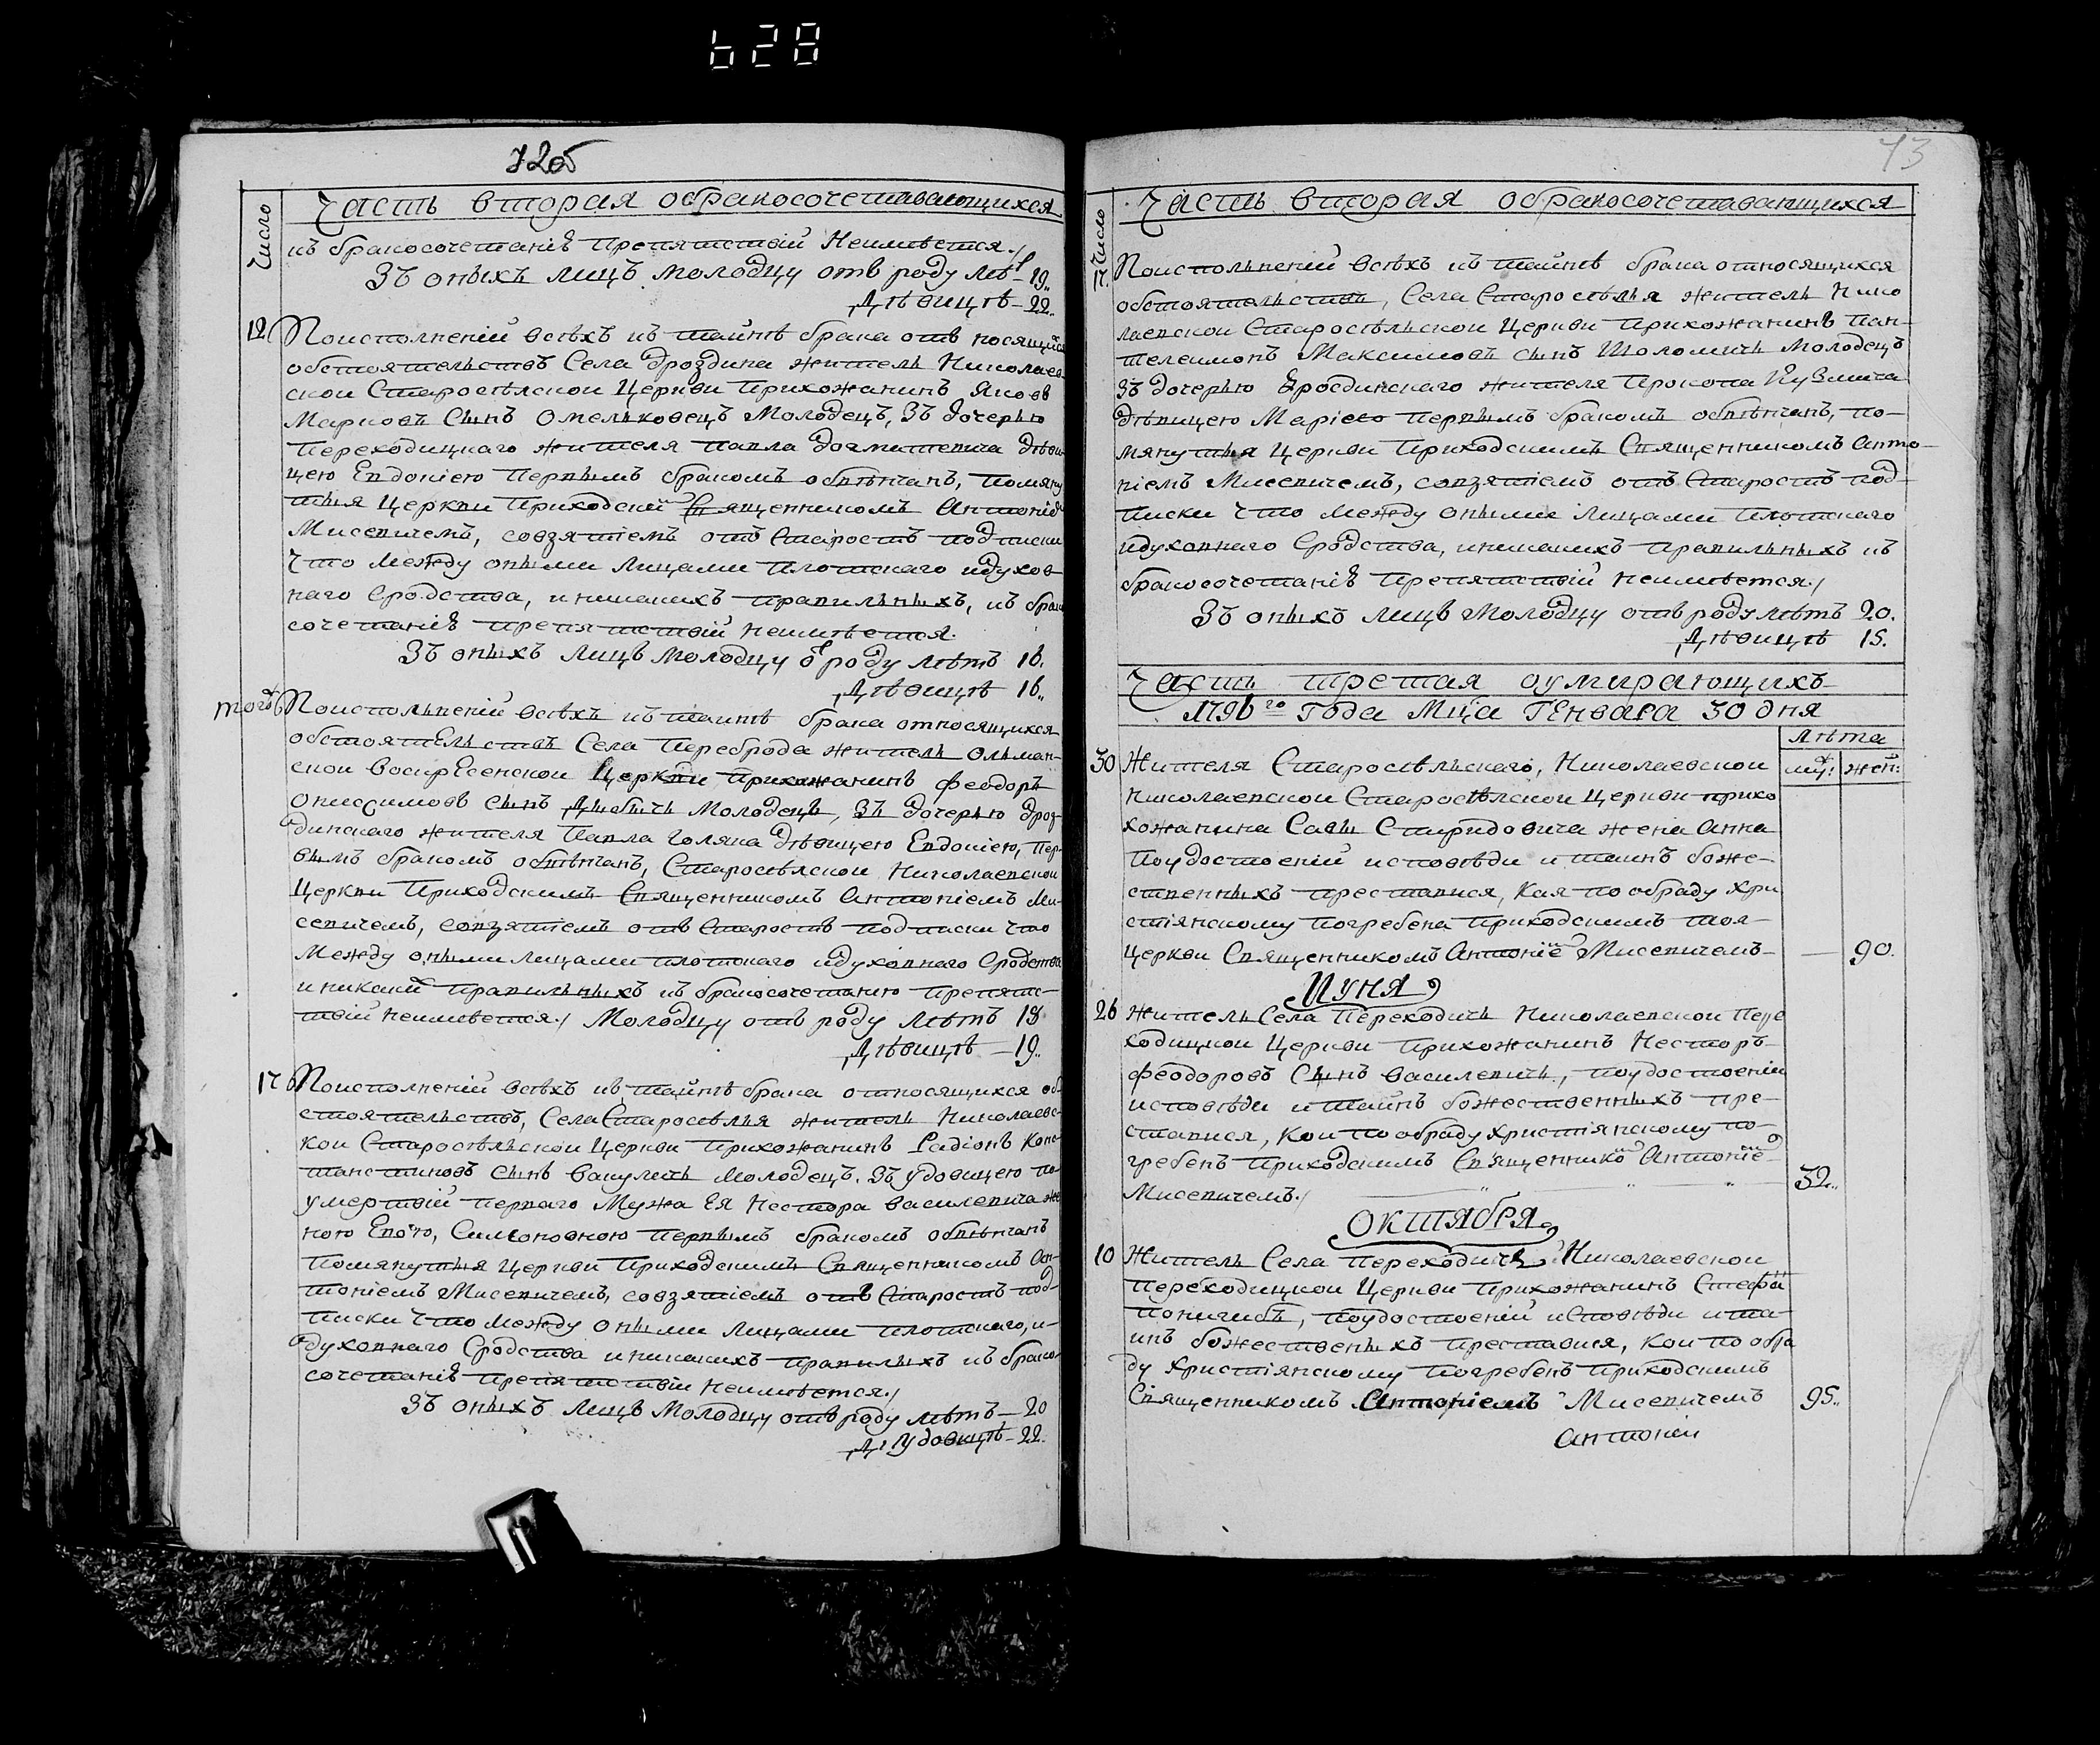 628
72об
Часть вторая обракосочетавающихся
Число
къ бракосочетаніѣ препятствій Неимѣется./
Зъ оныхъ лицъ молодцу отъ роду лѣт 19..
Дѣвицѣ – 22..
12 Поисполненій всѣхъ къ тайнѣ брака отъ носящихся
обстоятельствъ Села Дроздина житель Николаев-
скои Старосѣлскои Церкви прихожанинъ Яковъ
Марковъ Сынъ Омельковецъ Молодецъ, Зъ дочерью
Переходицкаго жителя Павла
цею Евдокіею Первымъ бракомъ обвѣнчанъ, помяну
тыя Церкви Приходскій Священникомъ Антоніе
Мисевичемъ, совзятіемъ отъ Старостъ подписки
Что между оными лицами плотскаго идухов-
наго Сродства, иникакихъ правильныхъ, къ брако
сочетаніѣ препятствій неимѣется.
Зъ оныхъ лицъ молодцу от роду лѣтъ 18.
Дѣвицѣ 16..
того Поисполненій всѣхъ къ таинѣ брака относящихся
обстоятельствъ Села Переброда житель Ольман-
скои Воскресенскои Церкви прихожанинъ Феодоръ
Онисимовъ сынъ Дибичъ Молодецъ, Зъ дочерью Дроз
динскаго жителя Павла Голяка Дѣвицею Евдокіею, Пер-
вымъ бракомъ обвѣнчанъ, Старосѣлскои Николаевскои
Церкви Приходскимъ Священникомъ Антоніемъ Ми-
севичемъ, совзятіемъ отъ Старостъ подписки что
Между оными лицами плотскаго идуховнаго Сродства
иникаких правильныхъ къ бракосочетанію препятс-
твій неимѣется./ Молодцу отъ роду лѣтъ 18
Дѣвицѣ – 19..
17 Поисполненій всѣхъ къ тайнѣ брака относящихся об
стоятельствъ, Села Старосѣлья житель Николаевс-
кои Старосѣльскои Церкви прихожанинъ Радіонъ Конс-
тантиновъ сынъ Вакуличъ Молодецъ. Зъ удовицею по
умертвій перваго Мужа Ея Нестора Василевича же
ною Симоновною Первымъ бракомъ обвѣнчанъ
Помянутыя Церкви Приходскимъ Священникомъ Ан-
тоніемъ Мисевичемъ, совзятіемъ отъ Старостъ под-
писки что между оными лицами плотскаго, и-
духовнаго Сродства иникакихъ правилныхъ къ брако-
сочетаніѣ препятствіи неимѣется./
Зъ оныхъ лицъ молодцу отъ роду лѣтъ – 20
Удовицѣ – 22.
73
Часть вторая обракосочетавающихся
Число
17. Поисполненій всѣхъ къ тайнѣ брака относящихся
обстоятельствъ, Села Старосѣлья житель Нико
лаевскои Старосѣльскои Церкви прихожанинъ Пан-
телеимонъ Максимовъ сынъ Шоломичъ Молодецъ
Зъ дочерью Дроздинскаго жителя Прокопа Кузмича
Дѣвицею Маріею первымъ бракомъ обвѣнчанъ, по-
мянутыя Церкви Приходскимъ Священникомъ Анто-
ніемъ Мисевичемъ, совзятіемъ отъ Старостъ под-
писки что между оными лицами плотскаго
идуховнаго Сродства, иникакихъ правильныхъ къ
бракосочетаніѣ препятствій неимѣется./
Зъ оныхъ лицъ Молодцу отъ роду лѣтъ 20.
Дѣвицѣ 15.
Часть третая оумирающихъ
1796го Года Мца Генвара 30 дня
Лѣта
муж: жен:
30 Жителя Старосѣльскаго, Николаевскои
Николаевскои Старосѣлскои Церкви прихо
хожанина Савы Спиридовича жена Анна
Поудостоеній исповѣди и таинъ боже-
ственныхъ преставися, Кая по обряду Хри
стіянскому погребена приходскимъ тоя
Церкви Священникомъ Антоніе Мисевичемъ – — 90.
Иуня
26 житель Села Переходичъ Николаевскои Пере
ходицкои Церкви прихожанинъ Несторъ
Феодоровъ Сынъ Василевичъ, поудостоеніи
исповѣди и таинъ божественныхъ пре-
ставися, кои по обряду христіянскому по-
гребенъ приходскимъ Священнико Антоніе
Мисевичемъ./ 32..
Октября
10 Житель Села Переходичъ Николаевскои
Переходицкои Церкви прихожанинъ Стефа
поудостоеній исповѣди и та-
инъ божественыхъ преставися, кои по обря
ду Христіянскому погребенъ приходскимъ
Священникомъ Антоніемъ Мисевичемъ 95..
Антоніи